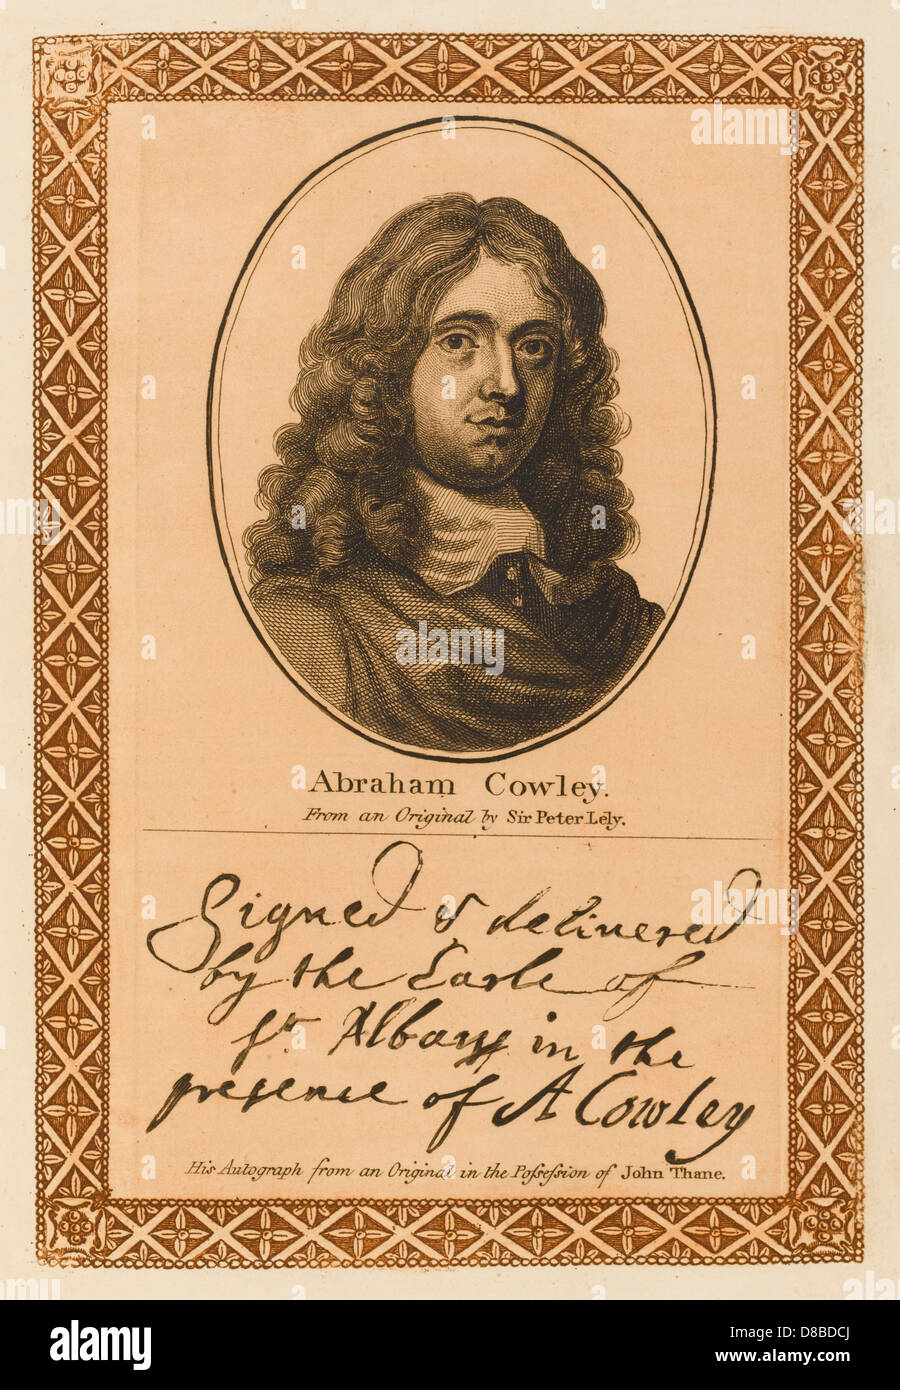 Abraham Cowley.
From an Original by Sir Peter Lely.
Signed & delivered
by the Earle of
St. Albans in the
presence of A Cowley
His Autograph from an Original in the Poſseſsion of John Thane.
alamy
Image ID: D8BDCJ
www.alamy.com